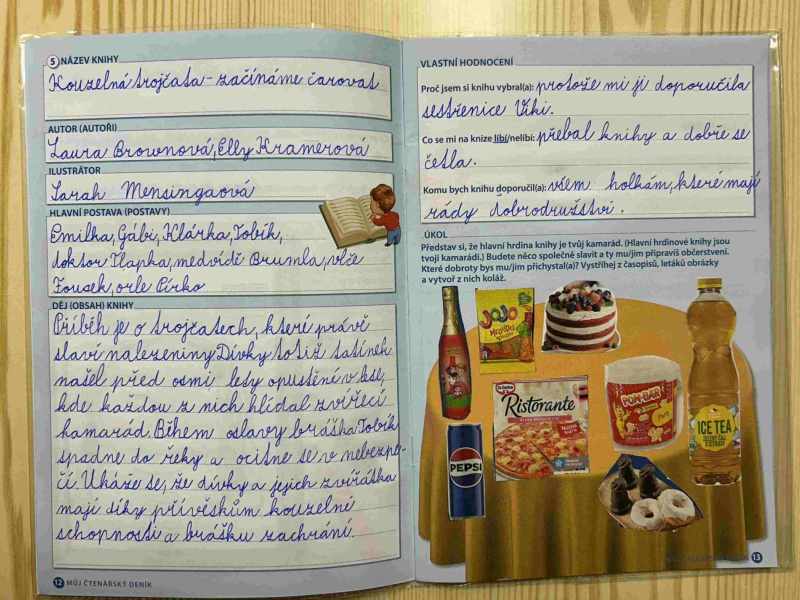 5 NÁZEV KNIHY
Kouzelná trojčata - začínáme čarovat
AUTOR (AUTOŘI)
Laura Brownová, Elly Kramerová
ILUSTRÁTOR
Sarah Mensingaová
HLAVNÍ POSTAVA (POSTAVY)
Emilka, Gábi, Klárka, Tobík,
doktor Tlapka, medvídě Brumla, vlče
Fousek, orle Pírko
DĚJ (OBSAH) KNIHY
Příběh je o trojčatech, které právě
slaví nalezeniny. Dívky totiž tatínek
našel před osmi lety opuštěné v lese,
kde každou z nich hlídal zvířecí
kamarád. Během oslavy bráška Tobík
spadne do řeky a ocitne se v nebezpe-
čí. Ukáže se, že dívky a jejich zvířátka
mají díky přívěskům kouzelné
schopnosti a brášku zachrání.
12 MŮJ ČTENÁŘSKÝ DENÍK
VLASTNÍ HODNOCENÍ
Proč jsem si knihu vybral(a): protože mi ji doporučila
sestřenice Viki.
Co se mi na knize líbí/nelíbí: přebal knihy a dobře se
četla.
Komu bych knihu doporučil(a): všem holkám, které mají
rády dobrodružství.
ÚKOL
Představ si, že hlavní hrdina knihy je tvůj kamarád. (Hlavní hrdinové knihy jsou
tvoji kamarádi.) Budete něco společně slavit a ty mu/jim připravíš občerstvení.
Které dobroty bys mu/jim přichystal(a)? Vystříhej z časopisů, letáků obrázky
a vytvoř z nich koláž.
JOJO
Dr. Oetker
Ristorante
POM-BÄR
ICE TEA
PEPSI
13